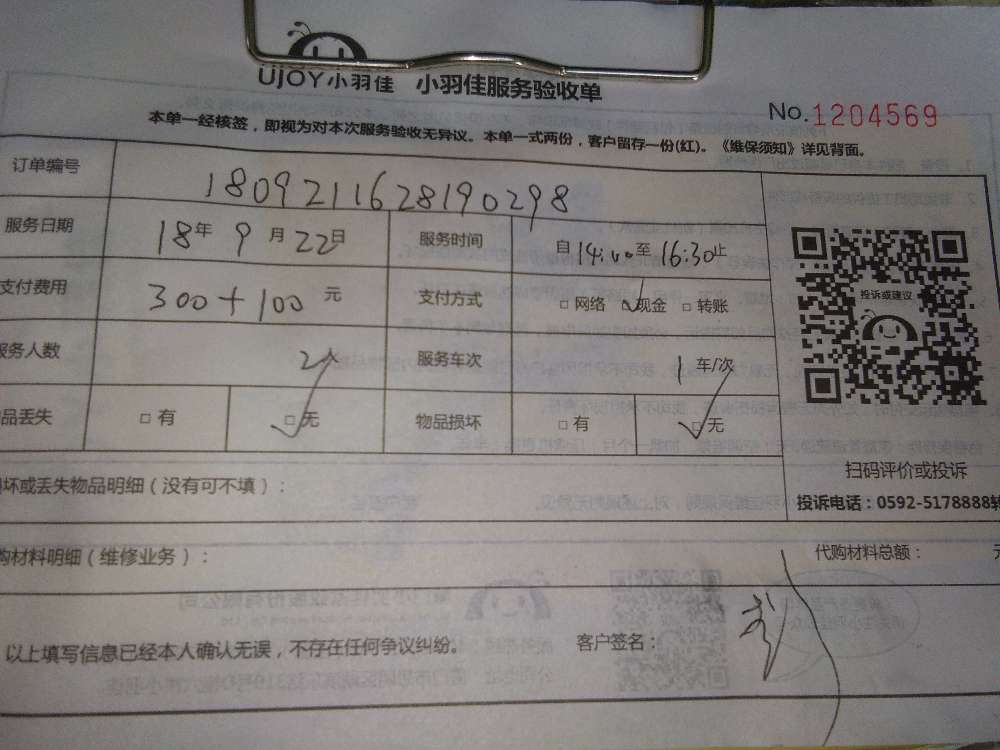 UJOY小羽佳 小羽佳服务验收单
No.1204569
本单一经核签，即视为对本次服务验收无异议。本单一式两份，客户留存一份(红)。《维保须知》详见背面。
订单编号 1809211628190298
服务日期 18年9月22日 服务时间 自14:00至16:30止
支付费用 300+100元 支付方式 □网络 ☑现金 □转账
服务人数 2人 服务车次 1车/次
品丢失 □有 ☑无 物品损坏 □有 ☑无
投诉或建议
扫码评价或投诉
投诉电话：0592-5178888转
坏或丢失物品明细（没有可不填）：
购材料明细（维修业务）： 代购材料总额： 元
以上填写信息已经本人确认无误，不存在任何争议纠纷。 客户签名：